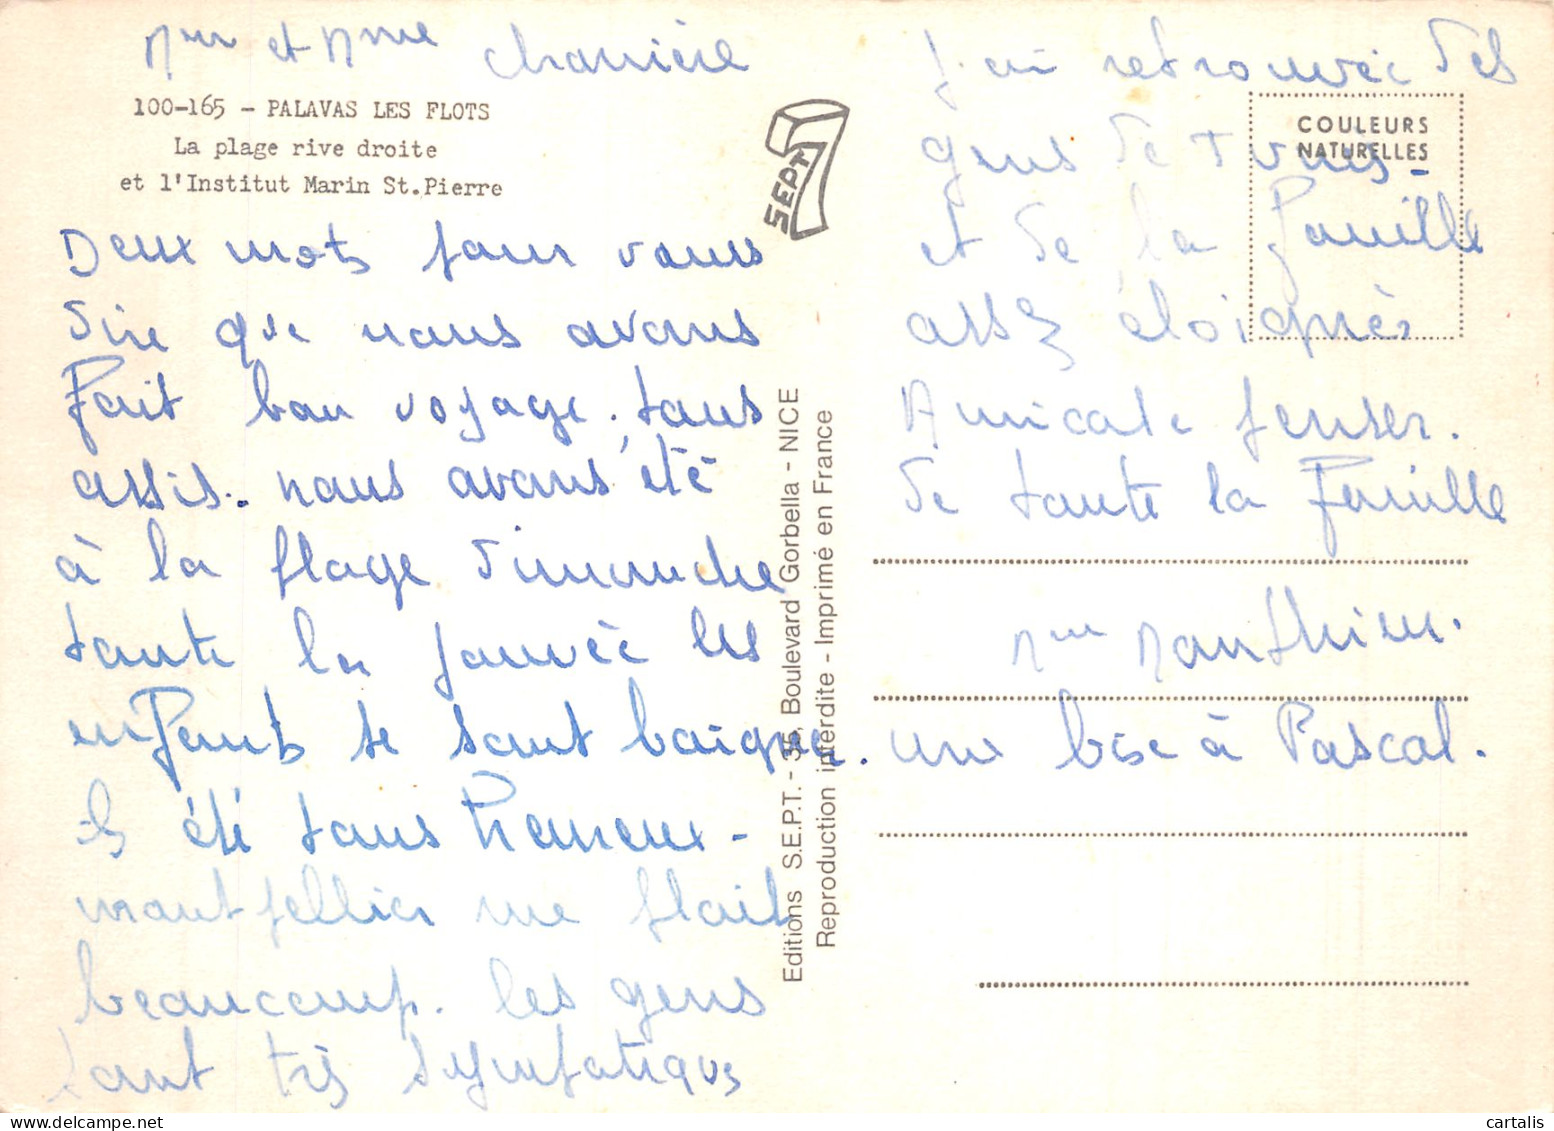 Mr et Mme Charrière
100-165 - PALAVAS LES FLOTS
La plage rive droite
et l'Institut Marin St.Pierre
Deux mots pour vous
dire que nous avons
fait bon voyage. tous
assis. nous avons été
à la plage dimanche
toute la journée les
enfants se sont baigner.
ils été tous heureux -
montpellier me plait
beaucoup. les gens
sont très sympatique
SEPT 7
Editions S.E.P.T. - 35, Boulevard Gorbella - NICE
Reproduction interdite - Imprimé en France
COULEURS
NATURELLES
J'ai retrouvée des
gens de Tunis -
et de la famille
assez éloignée
Amicale penser.
de toute la famille
Mme
une bise à Pascal.
cartalis